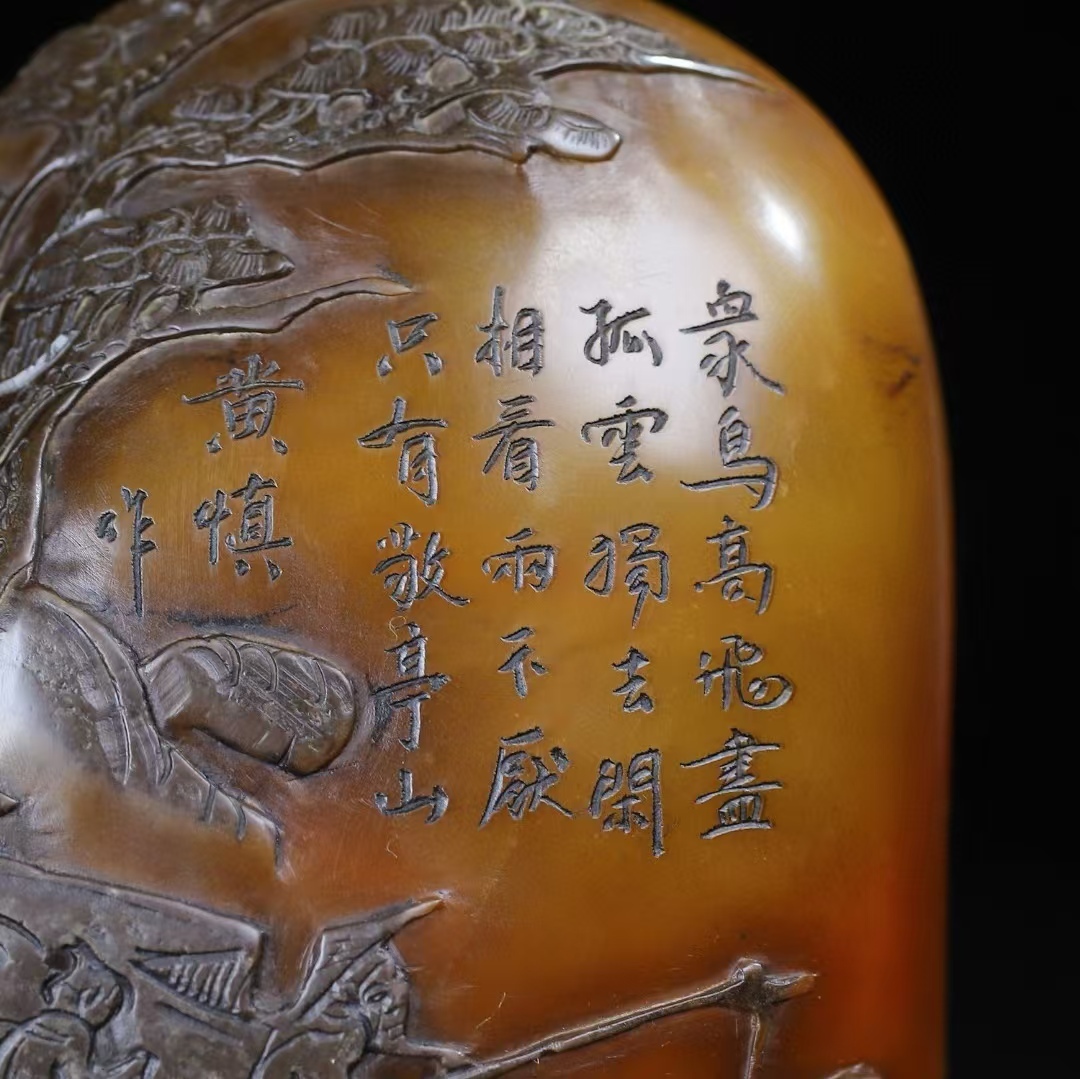 衆鳥高飛盡
孤雲獨去閑
相看兩不厭
只有敬亭山
黄慎
作